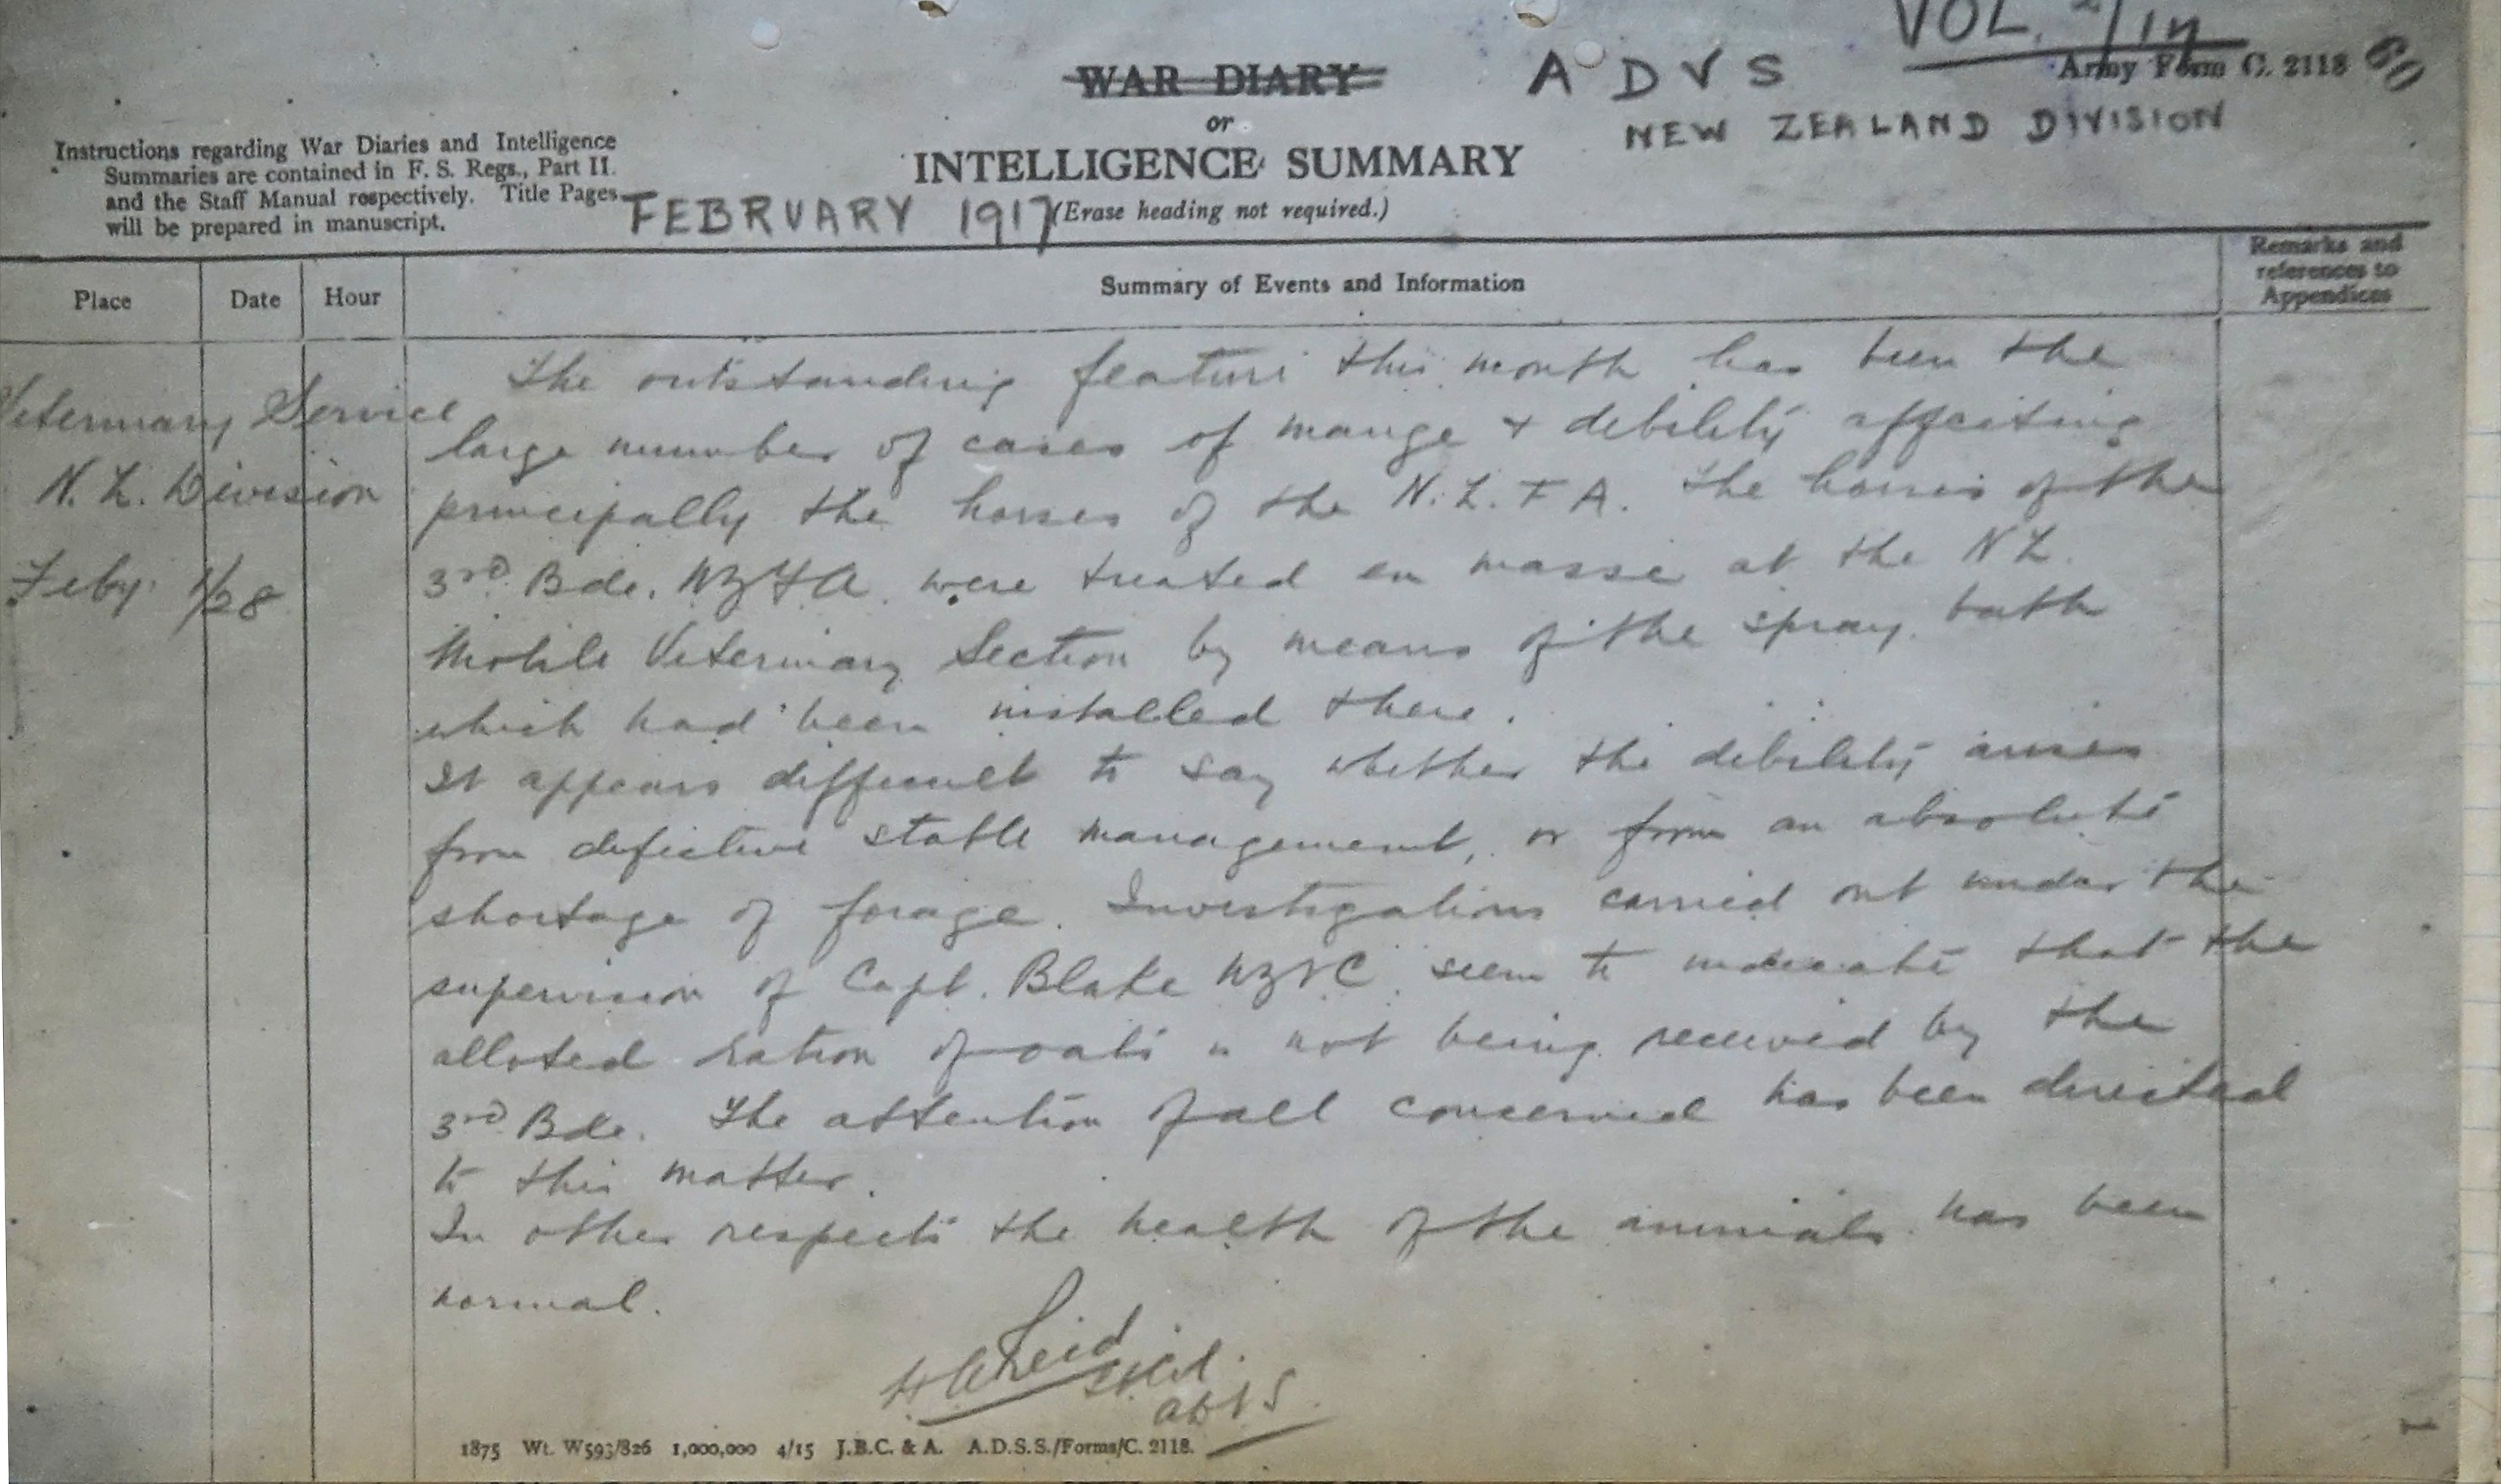 VOL.
Army Form C. 2118
60
WAR DIARY
or
INTELLIGENCE SUMMARY
(Erase heading not required.)
A D V S
NEW ZEALAND DIVISION
Instructions regarding War Diaries and Intelligence
Summaries are contained in F. S. Regs., Part II.
and the Staff Manual respectively. Title Pages
will be prepared in manuscript.
FEBRUARY 1917
Place
Date
Hour
Summary of Events and Information
Remarks and
references to
Appendices
Veterinary Service
N. Z. Division
Feby. 1/28
The outstanding feature this month has been the
large number of cases of mange & debility affecting
principally the horses of the N. Z. F A. The horses of the
3rd Bde. NZFA. were treated en masse at the N Z.
Mobile Veterinary Section by means of the spray bath
which had been installed there.
It appears difficult to say whether the debility arises
from defective stable management, or from an absolute
shortage of forage. Investigations carried out under the
supervision of Capt. Blake NZVC. seem to indicate that the
alloted ration of oats is not being received by the
3rd Bde. The attention of all concerned has been directed
to this matter.
In other respects the health of the animals has been
normal.
Reid
ADVS.
1875 Wt. W593/826 1,000,000 4/15 J.B.C. & A. A.D.S.S./Forms/C. 2118.
1